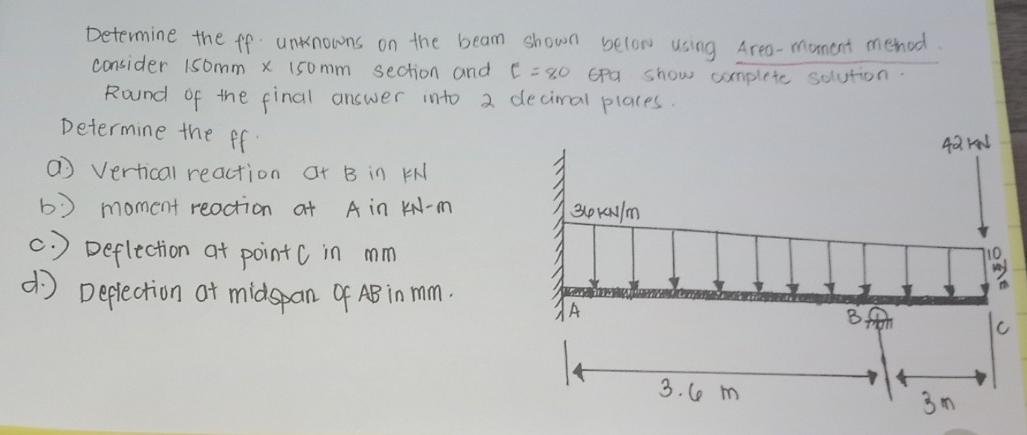 Determine the ff. unknowns on the beam shown below using Area-moment method.
consider 150mm x 150mm section and E = 80 GPa show complete solution.
Round of the final answer into 2 decimal places.
Determine the ff.
a.) Vertical reaction at B in kN
b.) moment reaction at A in kN-m
c.) Deflection at point C in mm
d.) Deflection at midspan of AB in mm.
42 kN
36 kN/m
10 kN/m
A
B
C
3.6 m
3m